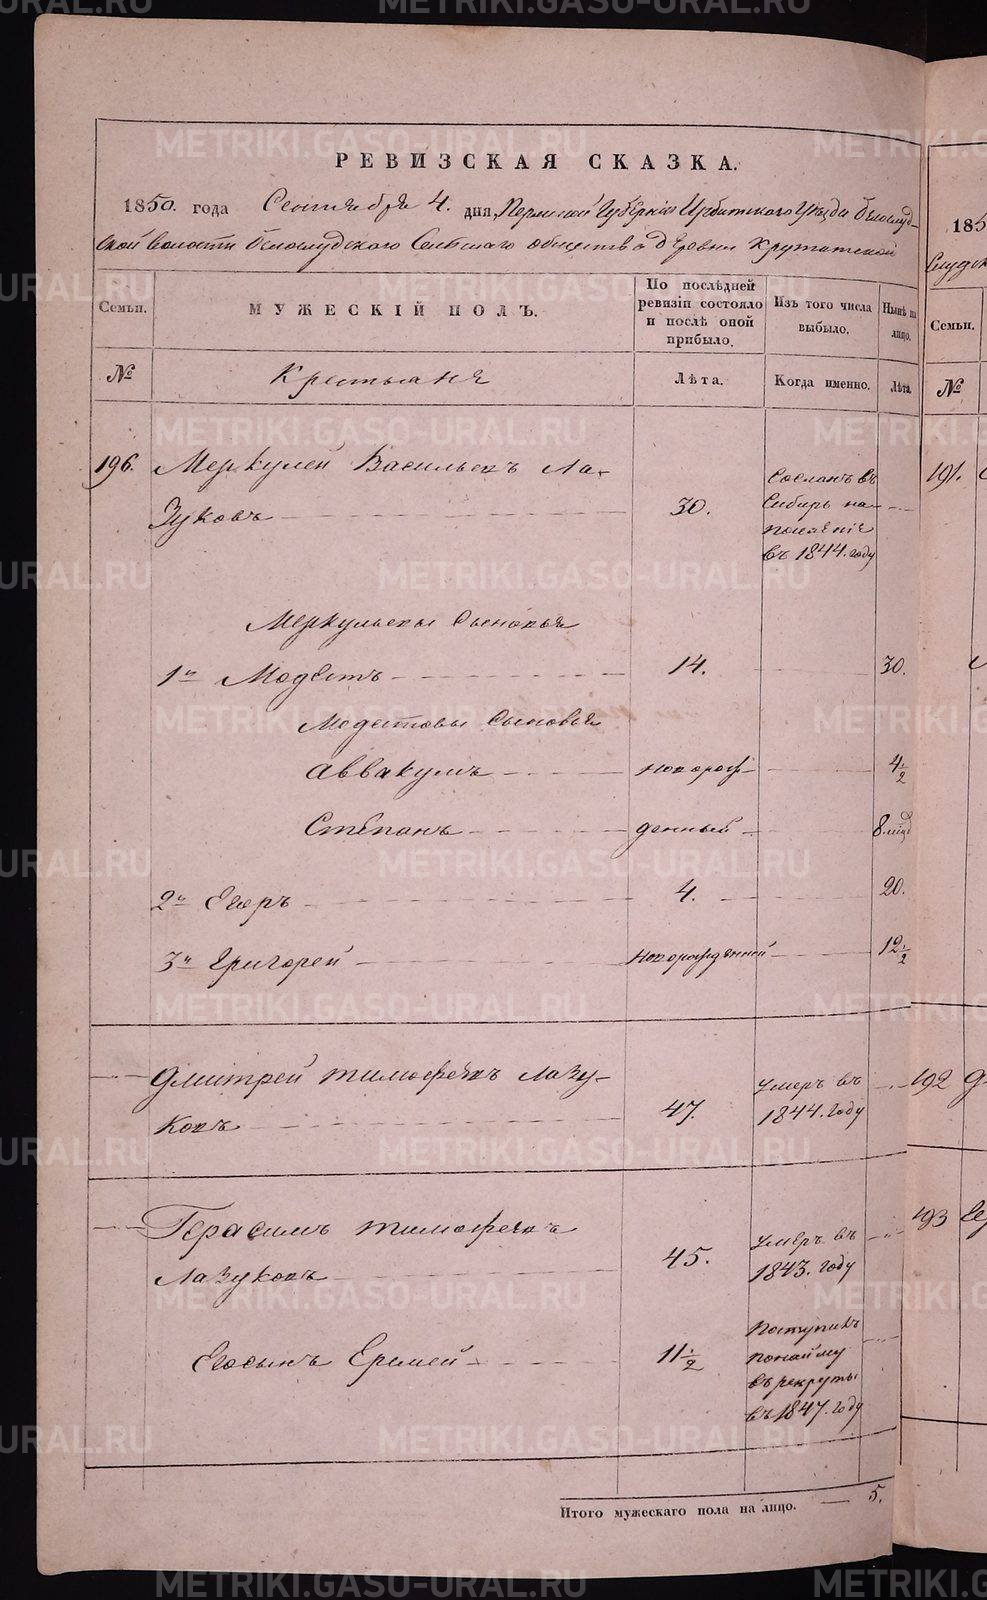 РЕВИЗСКАЯ СКАЗКА.
1850. года Сентября 4. дня, Пермской Губернии Ирбитского Уезда Белослуд-
ской волости Белослудского Сельского общества деревни Крутатской
Семьи.
МУЖЕСКІЙ ПОЛЪ.
По послѣдней ревизіи состояло и послѣ оной прибыло.
Изъ того числа выбыло.
Нынѣ на лицо.
№
Крестьяне
Лѣта.
Когда именно.
Лѣта
196. Меркулей Васильевъ Ла-
зуковъ 30. Сосланъ въ Сибирь на поселеніе въ 1844. году
Меркульевы Сыновья
1й Модестъ 14. 30.
Модестовы Сыновья
Аввакумъ новорож- 4 1/2
Степанъ денный 8. мѣц
2й Егоръ 4. 20.
3й Григорей Новорожденный 12 1/2
Дмитрей Тимофеевъ Лазу-
ковъ 47. умеръ въ 1844. году
Герасимъ Тимофеевъ
Лазуковъ 45. умеръ въ 1843. году
Егосынъ Еремей 11 1/2 поступилъ понайму въ рекруты въ 1847. году
Итого мужескаго пола на лицо. 5.
185
Семьи.
№
191.
192
193
METRIKI.GASO-URAL.RU